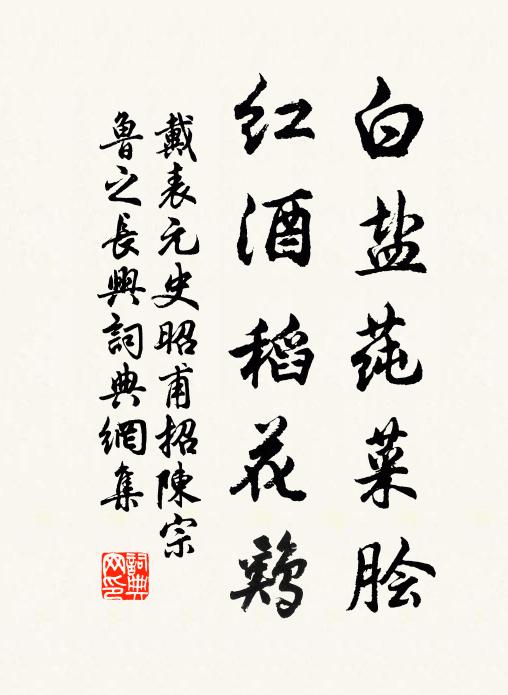 白盐莼菜脍
红酒稻花鷄
戴表元史昭甫招陳宗
魯之長興詞典網集
詞典网印